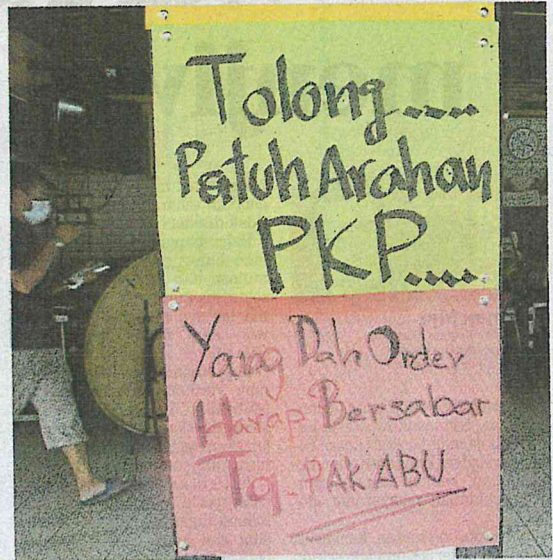 Tolong....
Patuh Arahan
PKP....
Yang Dah Order
Harap Bersabar
Tq. PAK ABU